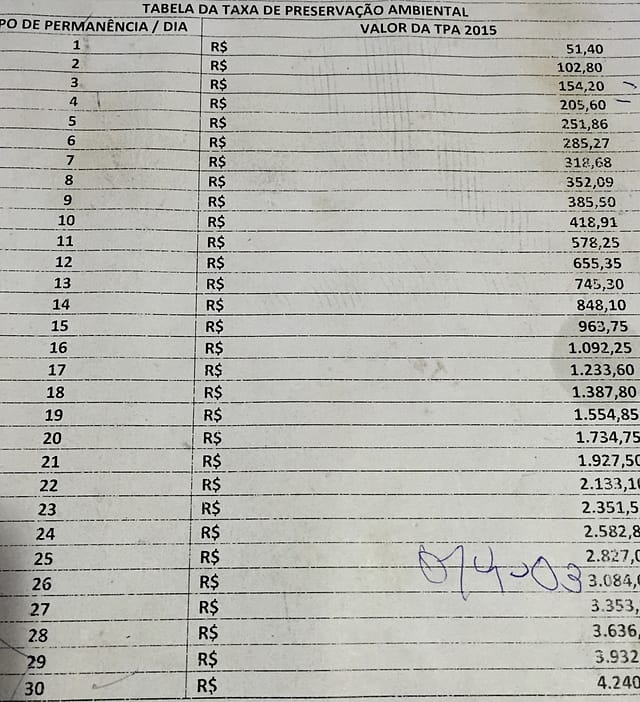 TABELA DA TAXA DE PRESERVAÇÃO AMBIENTAL
PO DE PERMANÊNCIA / DIA VALOR DA TPA 2015
1 R$ 51,40
2 R$ 102,80
3 R$ 154,20
4 R$ 205,60
5 R$ 251,86
6 R$ 285,27
7 R$ 318,68
8 R$ 352,09
9 R$ 385,50
10 R$ 418,91
11 R$ 578,25
12 R$ 655,35
13 R$ 745,30
14 R$ 848,10
15 R$ 963,75
16 R$ 1.092,25
17 R$ 1.233,60
18 R$ 1.387,80
19 R$ 1.554,85
20 R$ 1.734,75
21 R$ 1.927,50
22 R$ 2.133,10
23 R$ 2.351,5
24 R$ 2.582,8
25 R$ 2.827,0
26 R$ 3.084,0
27 R$ 3.353,
28 R$ 3.636,
29 R$ 3.932
30 R$ 4.240